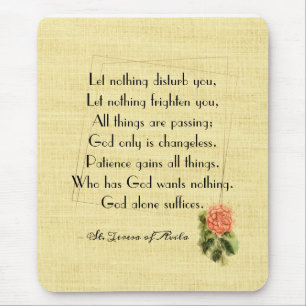 Let nothing disturb you,
Let nothing frighten you,
All things are passing;
God only is changeless.
Patience gains all things.
Who has God wants nothing.
God alone suffices.
St. Teresa of Avila